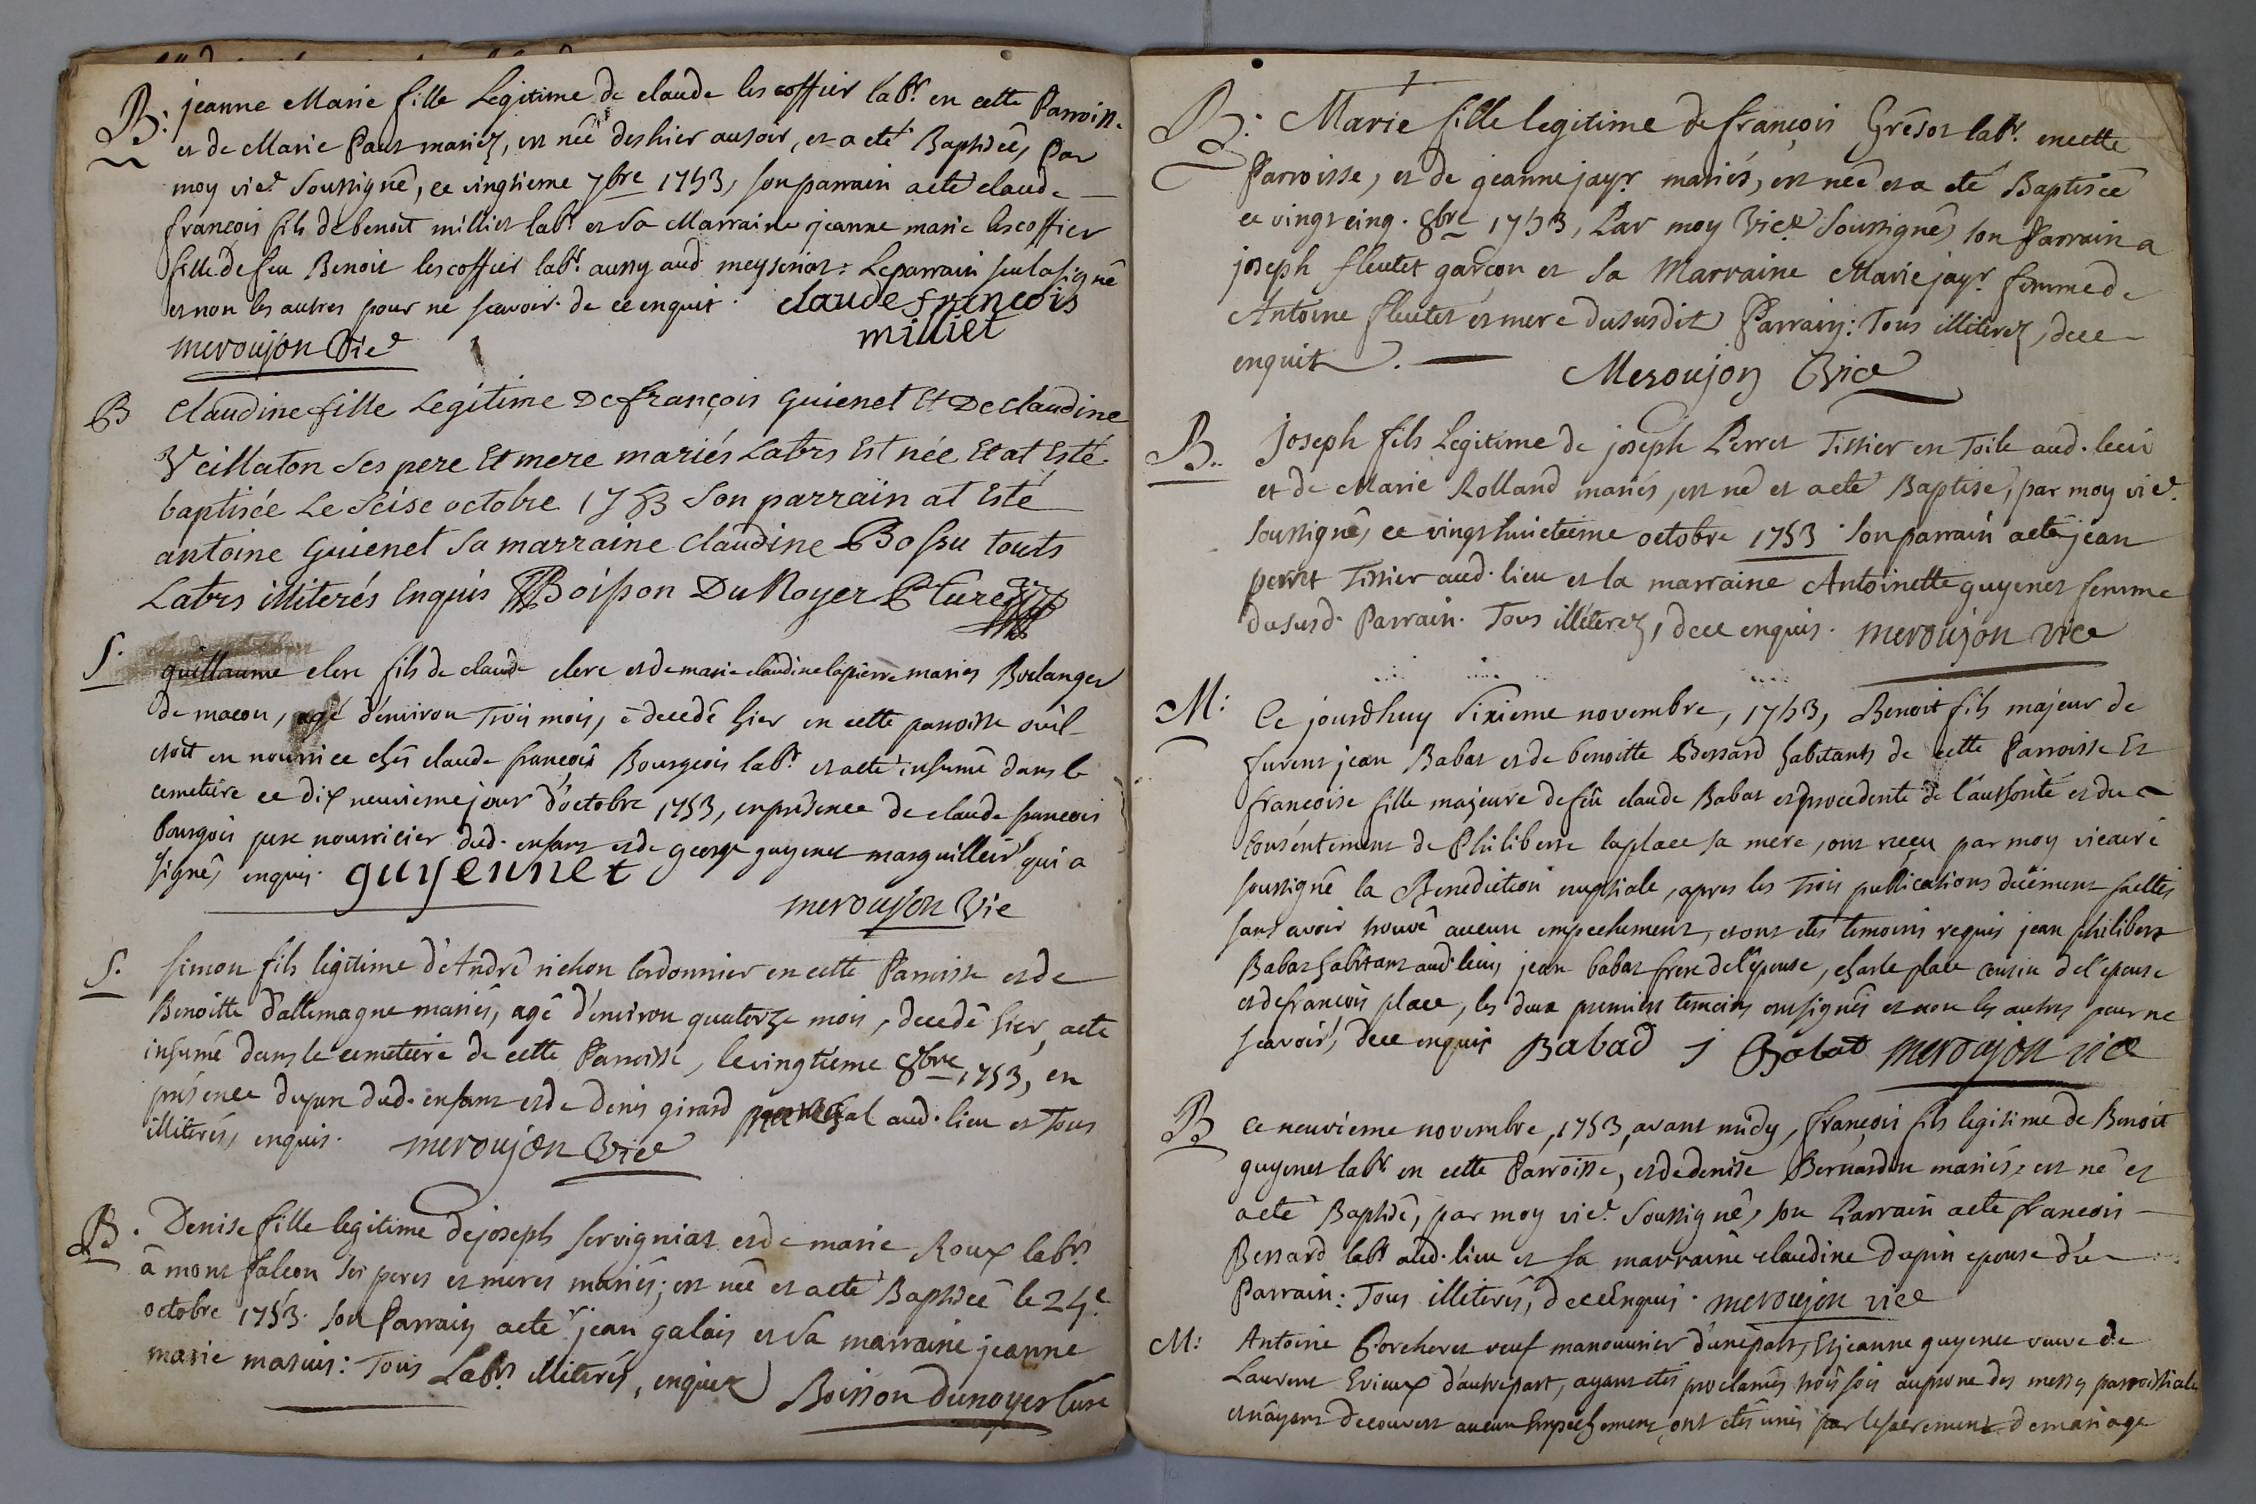 B: jeanne Marie fille Legitime de claude lescoffier labr. en cette Parroiss.
et de Marie Paut mariez, est née des hier au soir, et a eté Baptisée, Par
moy vic. Soussigné, ce vingtieme 7bre 1753, son parrain a eté claude
françois fils de benoit milliet labr. et Sa Marraine jeanne marie lescoffier
fille de feu Benoit lescoffier labr. aussy aud. meyseriat: Le parrain seul a signé
et non les autres pour ne scavoir de ce enquit. claude françois
milliet
meroujon vic.
B Claudine fille Legitime De françois Guienet Et De claudine
Veillaton Ses pere Et mere mariés Labrs Est née Et at Esté
baptisée Le Seise octobre 1753 Son parrain at Esté
antoine Guienet Sa marraine Claudine Bossu touts
Labrs illiterés Enquis Boisson Du Noyer Curé
S. guillaume clerc fils de claude clerc et de marie claudine lapierre mariés Boulanger
de macon, agé d'environ Trois mois, e decedé hier en cette parroisse ou il
etoit en nourrice chés claude françois Bourgeois labr. et a eté inhumé dans le
cemetiere ce dix neuvieme jour d'octobre 1753, en presence de claude francois
bourgois pere nourricier dud. enfant et de george guyenet marguilleir qui a
signé, enquis. guyennet
meroujon Vic
S. Simon fils legitime d'André richon Cordonnier en cette Parroisse et de
Benoitte d'allemagne mariés, agé d'environ quatorze mois, decedé hier, a eté
inhumé dans le cemetiere de cette Parroisse, le vingtieme 8bre 1753, en
presence du pere dud. enfant et de denis girard aud. lieu et Tous
illiterés, enquis. meroujon Vice
B. Denise fille legitime de joseph servigniat et de marie Roux labrs
à mont falcon Ses peres et meres mariés; est née et a eté Baptisée le 24e
octobre 1753. son Parrain a eté jean galais et Sa marraine jeanne
marie matuis: Tous Labrs. illiterés, enquis Boisson dunoyer Curé
B: Marie fille legitime de françois Grésot labr. en cette
Parroisse, et de jeanne jayr. mariés, est née et a eté Baptisée
ce vingt cinq. 8bre 1753, Par moy Vice Soussigné, son Parrain a
joseph fleutet garçon et Sa Marraine Marie jayr. femme de
Antoine fleutet et mere du susdit Parrain: Tous illiterez, de ce
enquit. Meroujon Vice
B.. Joseph fils Legitime de joseph Perret Tissier en Toile aud. leiu
et de Marie Rolland mariés, est né et a eté Baptisé, par moy vic.
soussigné, ce vingt huictieme octobre 1753. son parrain a eté jean
perret Tissier aud. lieu et la marraine Antoinette guyenet femme
du susd. Parrain. Tous illéterez, de ce enquis. meroujon vice
M: Ce jourdhuy Sixieme novembre, 1753, Benoit fils majeur de
furent jean Babat et de benoitte Bessard habitants de cette Parroisse Et
françoise fille majeure de feû claude Babat et procedente de l'authorité et du
consentement de Philiberte laplace sa mere, ont reçu par moy vicaire
soussigné la Benediction nuptiale, apres les Trois publications duëment faittes
sans avoir trouvé aucun empechement, et ont etés temoins requis jean philibert
Babat habitant aud. leiu, jean babat frere de l'epouse, charle place cousin de l'epouse
et de françois place, les deux premiers temoins ont signés et non les autres pour ne
scavoir, de ce enquis Babad J Babat meroujon vice
B ce neuvieme novembre, 1753, avant midy, françois fils legitime de Benoit
guyenet labr. en cette Parroisse, et de denise Bernardin mariés, est né et
a eté Baptisé, par moy vic. Soussigné, son Parrain a eté francois
Bessard labr. aud. lieu et sa marraine claudine dupin epouse du
Parrain: Tous illiterés, de ce Enquis. meroujon vice
M: Antoine Porcheret veuf manouvrier d'une part, Et jeanne guyenet veuve de
Laurent Evieux d'autre part, ayant etés proclamés trois fois au prone des messes parroissiale
et n'ayant decouvert aucun Empechement, ont etés unis par le sacrement de mariage